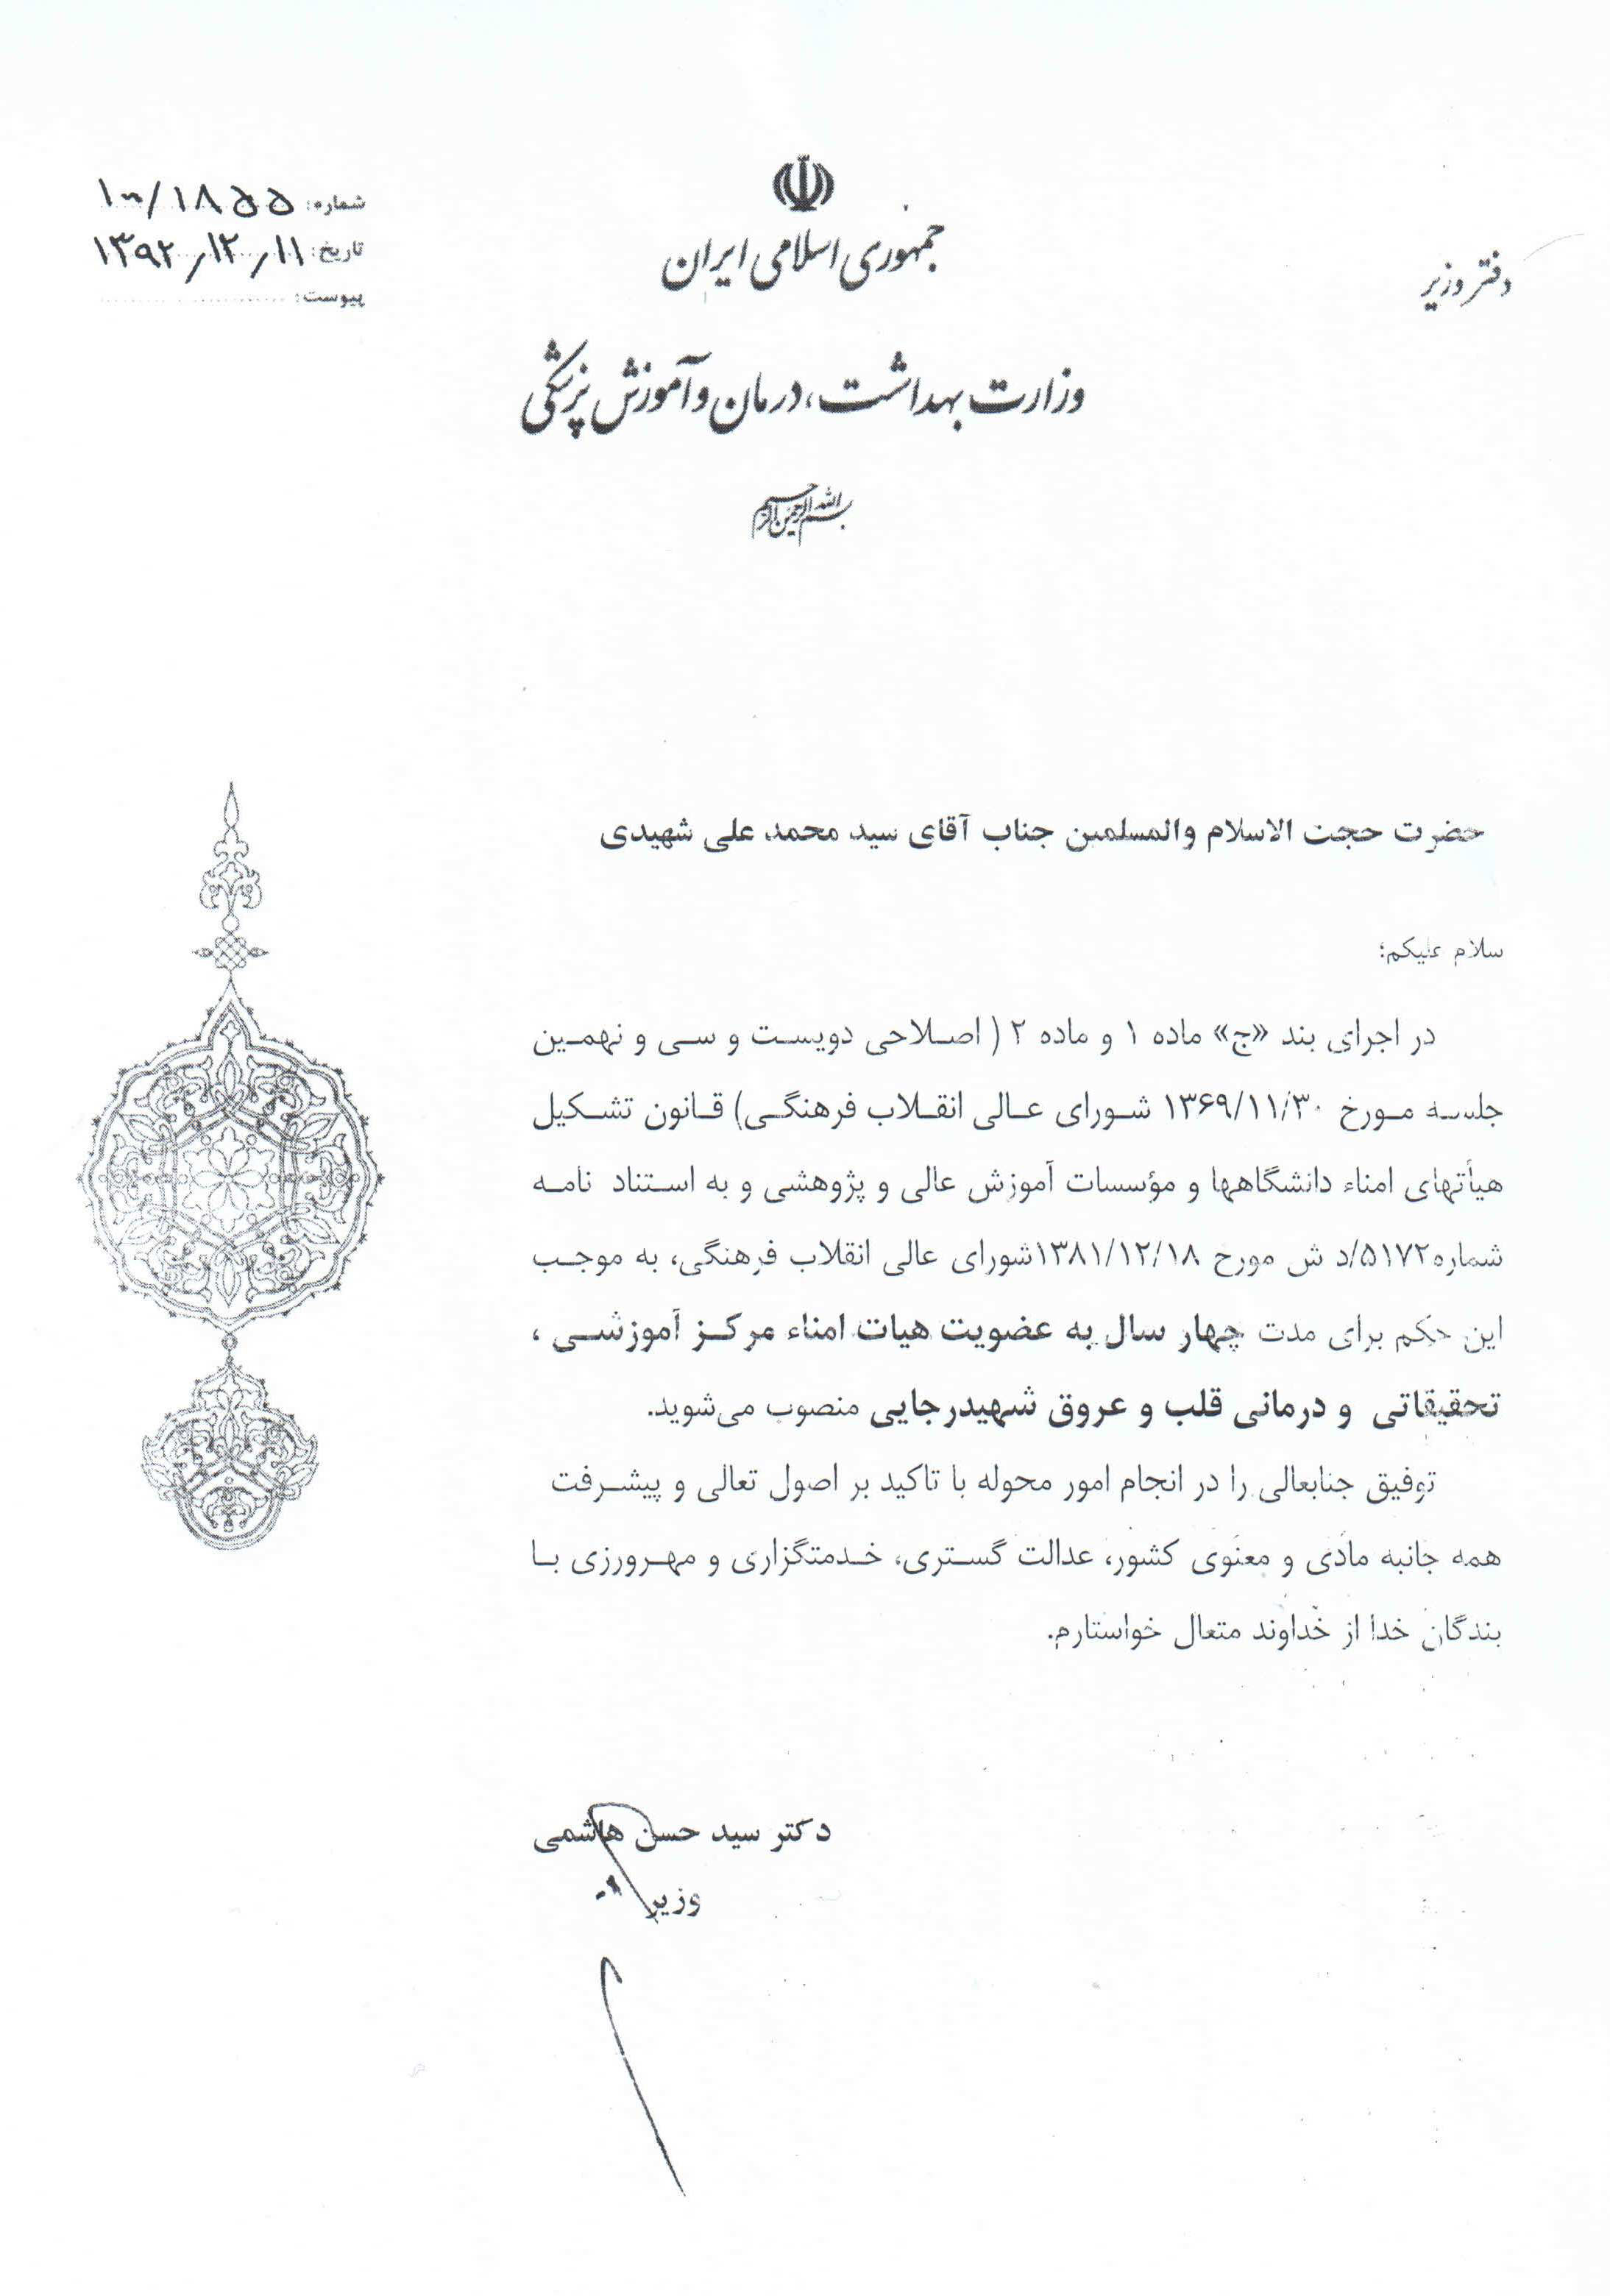 جمهوری اسلامی ایران
وزارت بهداشت، درمان و آموزش پزشکی
بسم الله الرحمن الرحیم
دفتر وزیر
شماره: ۱۰۰/۱۸۵۵
تاریخ: ۱۳۹۲/۱۲/۱۱
پیوست:
حضرت حجت الاسلام والمسلمین جناب آقای سید محمد علی شهیدی
سلام علیکم؛
در اجرای بند «ج» ماده ۱ و ماده ۲ ( اصلاحی دویست و سی و نهمین
جلسه مورخ ۱۳۶۹/۱۱/۳۰ شورای عالی انقلاب فرهنگی) قانون تشکیل
هیأتهای امناء دانشگاهها و مؤسسات آموزش عالی و پژوهشی و به استناد نامه
شماره۵۱۷۲/د ش مورخ ۱۳۸۱/۱۲/۱۸شورای عالی انقلاب فرهنگی، به موجب
این حکم برای مدت چهار سال به عضویت هیات امناء مرکز آموزشی ،
تحقیقاتی و درمانی قلب و عروق شهیدرجایی منصوب می‌شوید.
توفیق جنابعالی را در انجام امور محوله با تاکید بر اصول تعالی و پیشرفت
همه جانبه مادی و معنوی کشور، عدالت گستری، خدمتگزاری و مهرورزی با
بندگان خدا از خداوند متعال خواستارم.
دکتر سید حسن هاشمی
وزیر